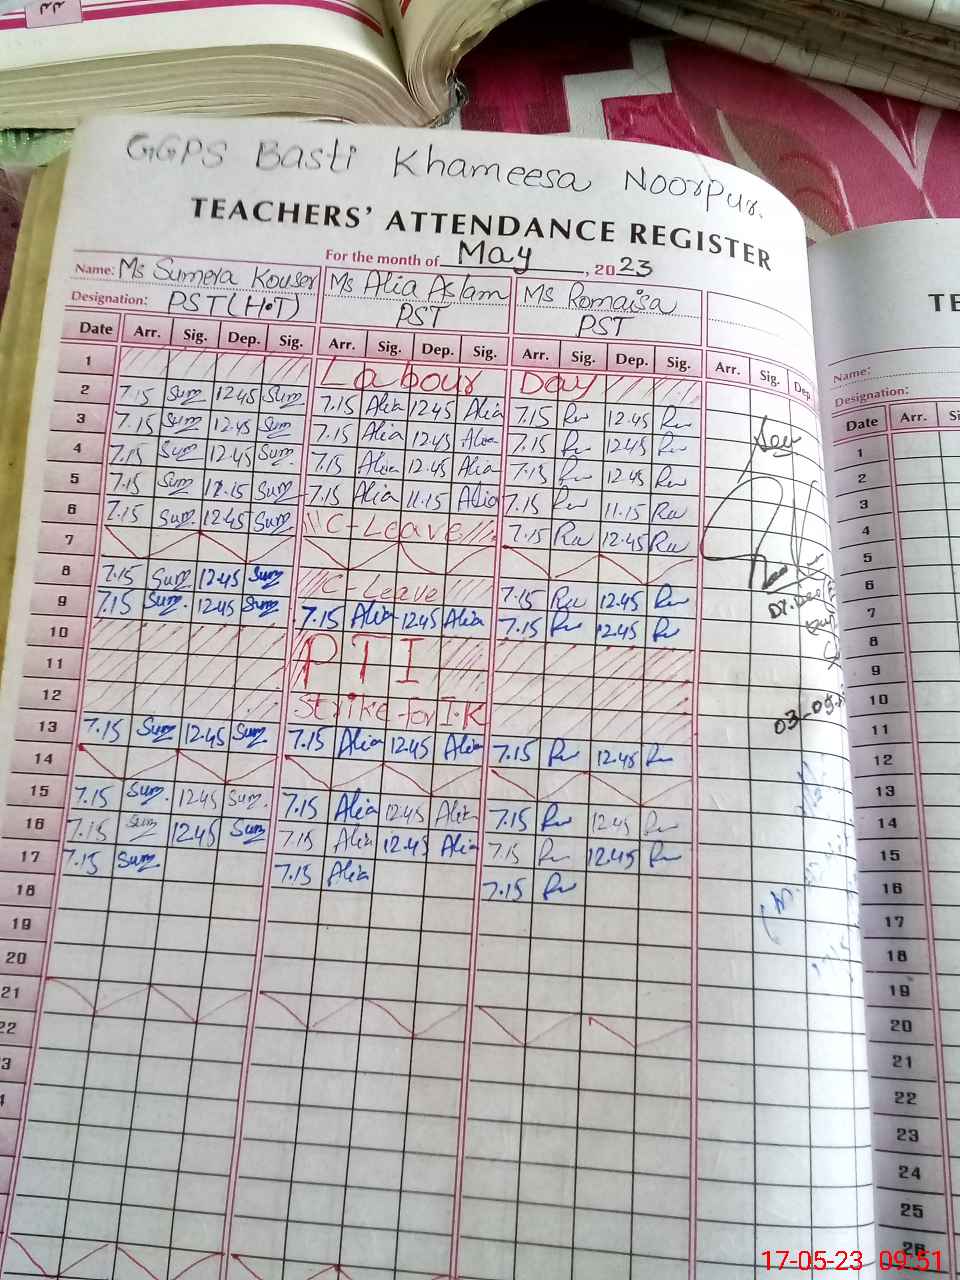 ۲۳
GGPS Basti Khameesa Noorpur.
TEACHERS' ATTENDANCE REGISTER
For the month of May, 2023
Name: Ms Sumera Kouser Ms Alia Aslam Ms Romaisa
Designation: PST (H.T) PST PST
Date Arr. Sig. Dep. Sig. Arr. Sig. Dep. Sig. Arr. Sig. Dep. Sig. Arr. Sig. Dep.
1 Labour Day
2 7.15 Sum 12.45 Sum 7.15 Alia 12.45 Alia 7.15 Ru 12.45 Ru
3 7.15 Sum 12.45 Sum 7.15 Alia 12.45 Alia 7.15 Ru 12.45 Ru
4 7.15 Sum 12.45 Sum 7.15 Alia 12.45 Alia 7.15 Ru 12.45 Ru
5 7.15 Sum 11.15 Sum 7.15 Alia 11.15 Alia 7.15 Ru 11.15 Ru
6 7.15 Sum 12.45 Sum C-Leave 7.15 Ru 12.45 Ru
7
8 7.15 Sum 12.45 Sum C-Leave 7.15 Ru 12.45 Ru
9 7.15 Sum 12.45 Sum 7.15 Alia 12.45 Alia 7.15 Ru 12.45 Ru
10
11 PTI
12 Strike for I.K
13 7.15 Sum 12.45 Sum 7.15 Alia 12.45 Alia 7.15 Ru 12.45 Ru
14
15 7.15 Sum 12.45 Sum 7.15 Alia 12.45 Alia 7.15 Ru 12.45 Ru
16 7.15 Sum 12.45 Sum 7.15 Alia 12.45 Alia 7.15 Ru 12.45 Ru
17 7.15 Sum 7.15 Alia 7.15 Ru
18
19
20
21
22
3
Seen
03-05
TE
Name:
Designation:
Date Arr.
1
2
3
4
5
6
7
8
9
10
11
12
13
14
15
16
17
18
19
20
21
22
23
24
25
26
17-05-23 09:51